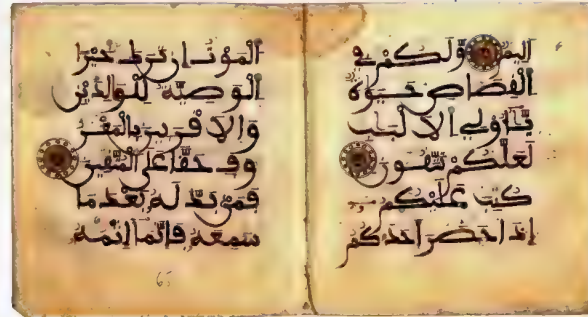 اليم وَلَكُمْ فِي
الْقِصَاصِ حَيَوٰةٌ
يَٰٓأُوْلِي الْأَلْبَٰبِ
لَعَلَّكُمْ تَتَّقُونَ
كُتِبَ عَلَيْكُمْ
إِذَا حَضَرَ أَحَدَكُمُ
الْمَوْتُ إِن تَرَكَ خَيْرًا
الْوَصِيَّةُ لِلْوَٰلِدَيْنِ
وَالْأَقْرَبِينَ بِالْمَعْرُ
وفِ حَقًّا عَلَى الْمُتَّقِينَ
فَمَنۢ بَدَّلَهُ بَعْدَ مَا
سَمِعَهُ فَإِنَّمَا إِثْمُهُ